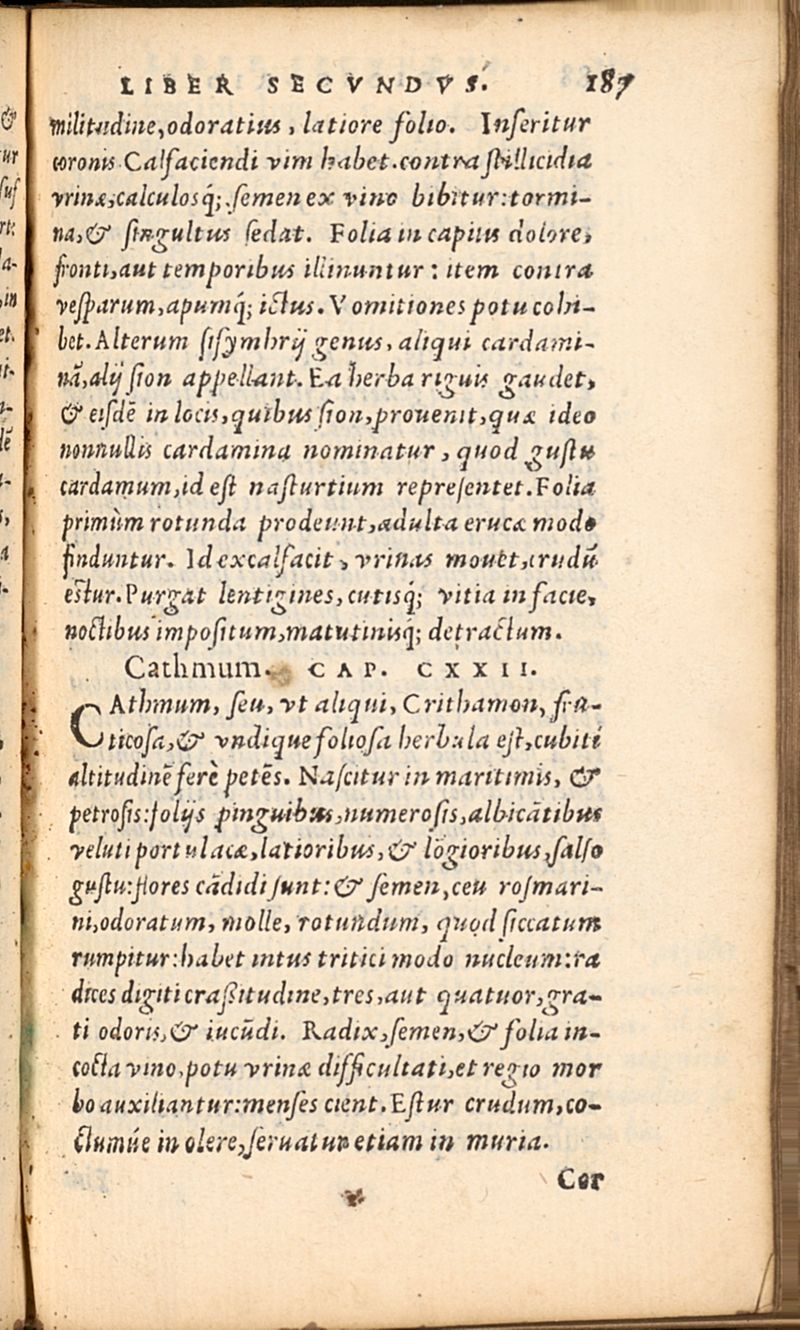 LIBER SECVNDVS. 187
militudine, odoratius, latiore folio. Inseritur
coronis. Calfaciendi vim habet. contra stillicidia
vrinæ, calculosq́; semen ex vino bibitur: tormi-
na, & singultus sedat. Folia in capitis dolore,
fronti, aut temporibus illinuntur: item contra
vesparum, apumq́; ictus. Vomitiones potu cohi-
bet. Alterum sisymbrij genus, aliqui cardami-
nã, alij sion appellant. Ea herba riguis gaudet,
& eisdẽ in locis, quibus sion, prouenit, quæ ideo
nonnullis cardamina nominatur, quod gustu
cardamum, id est nasturtium representet. Folia
primùm rotunda prodeunt, adulta erucæ modo
finduntur. Id excalfacit, vrinas mouet, crudũ
estur. Purgat lentigines, cutisq́; vitia in facie,
noctibus impositum, matutinisq́; detractum.
Cathmum. CAP. CXXII.
CAthmum, seu, vt aliqui, Crithamon, fru-
ticosa, & vndique foliosa herbula est, cubiti
altitudinẽ ferè petẽs. Nascitur in maritimis, &
petrosis: folijs pinguibus, numerosis, albicãtibus
veluti portulacæ, latioribus, & lõgioribus, salso
gustu: flores cãdidi sunt: & semen, ceu rosmari-
ni, odoratum, molle, rotundum, quod siccatum
rumpitur: habet intus tritici modo nucleum: ra
dices digiti crassitudine, tres, aut quatuor, gra-
ti odoris, & iucũdi. Radix, semen, & folia in-
cocta vino, potu vrinæ difficultati, et regio mor
bo auxiliantur: menses cient. Estur crudum, co-
ctumúe in olere, seruatur etiam in muria.
Cor